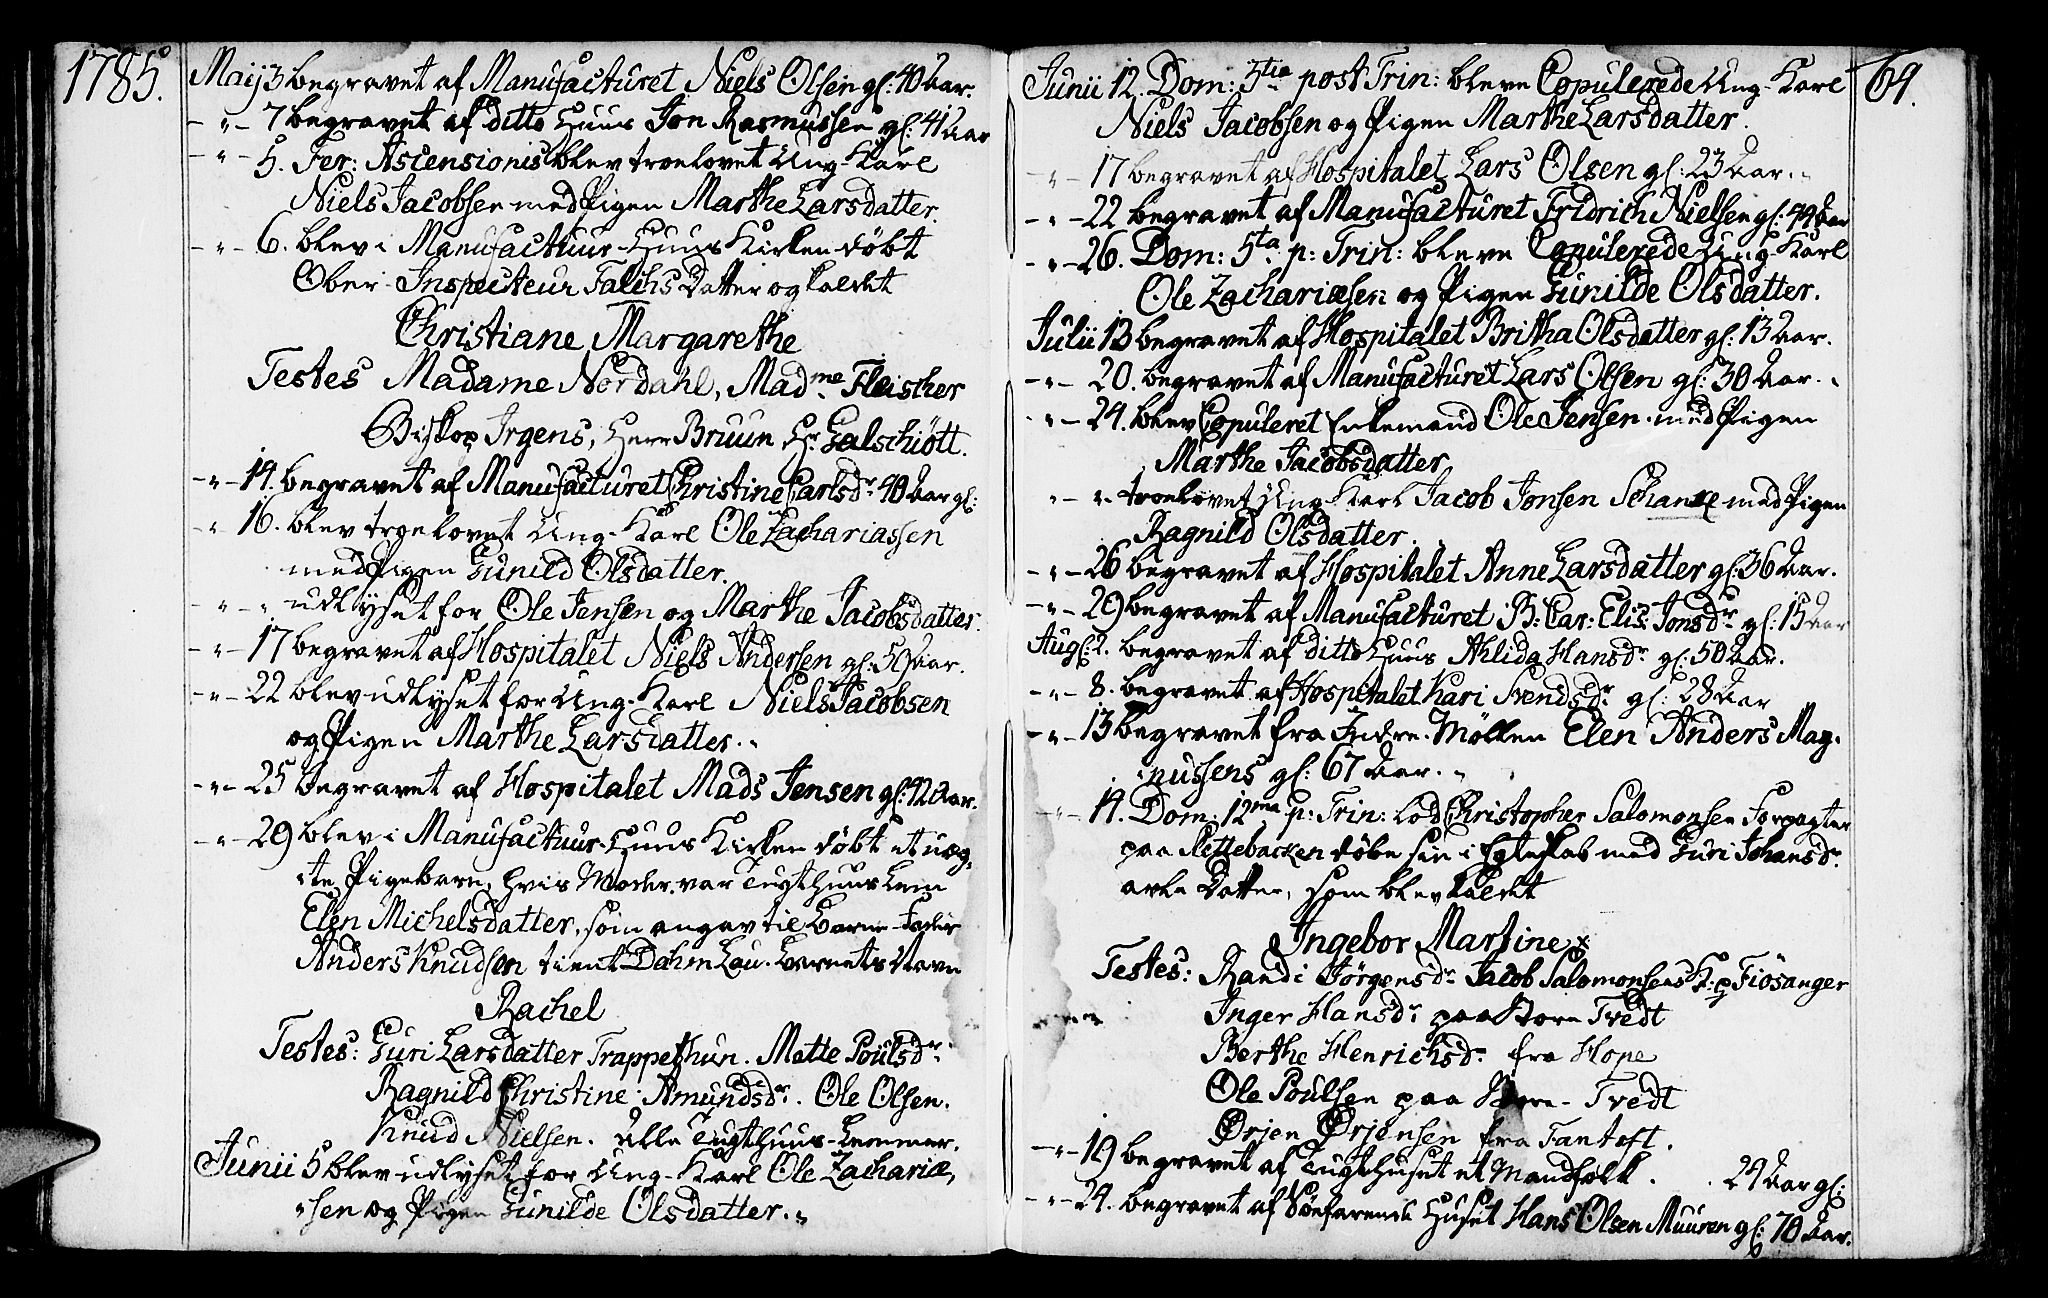 1785.
Maij 3 begravet af Manufacturet Niels Olsen gl: 40 Aar.
- " - 7 begravet af ditto Huus Jon Rasmussen gl: 41 Aar
- " - 5. Fer: Ascensionis blev troelovet Ung-Karl
Niels Jacobsen med Pigen Marthe Larsdatter.
- " - 6. blev i Manufactuur-Huus Kirken døbt
Ober-Inspecteur Falchs Datter og kaldet
Christiane Margarethe
Testes Madame Nordahl, Madme Fleischer
Biskop Irgens, Herr Bruun Hr Galschiøtt.
- " - 14. begravet af Manufacturet Christine Carlsdr 40 Aar gl:
- " 16. blev troelovet Ung-Karl Ole Zachariassen
med Pigen Gunild Olsdatter.
- " - " udlyset for Ole Jensen og Marthe Jacobsdatter.
- " - 17 begravet af Hospitalet Niels Andersen gl: 50 Aar.
- " - 22 blev udlyset for Ung-Karl Niels Jacobsen
og Pigen Marthe Larsdatter. "
- " - 25 begravet af Hospitalet Mads Jensen gl: 42 Aar.
- " - 29 blev i Manufactuur-Huus Kirken døbt et uæg-
te Pigebarn, hvis Moder var Tugthuus Lem
Elen Michelsdatter, som angav til Barne-Fader
Anders Knudsen tient Dahm Lau. Barnets Navn
Rachel
Testes: Guri Larsdatter Trappethun. Mette Poulsdr
Ragnild Christine Amundsdr. Ole Olsen.
Knud Nielsen. Alle Tugthuus-Lemmer.
Junii 5 blev udlyset for Ung-Karl Ole Zachariæ-
sen og Pigen Gunilde Olsdatter. "
69.
Junii 12. Dom: 3tia post Trin: bleve Copulerede Ung-Karl
Niels Jacobsen og Pigen Marthe Larsdatter.
- " - 17 begravet af Hospitalet Lars Olsen gl: 23 Aar. "
- " - 22 begravet af Manufacturet Fridrich Nielsen gl: 49 Aar
- " - 26. Dom: 5ta p: Trin: bleve Copulerede Ung-Karl
Ole Zachariæsen og Pigen Gunilde Olsdatter.
Julii 13 begravet af Hospitalet Britha Olsdatter gl: 13 Aar.
- " - 20. begravet af Manufacturet Lars Olsen gl: 30 Aar. "
- " - 24. blev Copuleret Enkemand Ole Jensen med Pigen
Marthe Jacobsdatter
" - " troelovet Ung-Karl Jacob Jonsen Schanxe med Pigen
Ragnild Olsdatter.
- " - 26 begravet af Hospitalet Anne Larsdatter gl: 36 Aar.
- " - 29 begravet af Manufacturet B: Car: Elis: Jonsdr gl: 15 Aar
Aug: 2. begravet af ditto Huus Ahlida Hansdr gl: 50 Aar.
- " - 8. begravet af Hospitalet Kari Svendsdr gl: 28 Aar
- " - 13 begravet fra Indre-Møllen Elen Anders Mag-
nussens gl: 67 Aar. "
- " - 14. Dom: 12ma p: Trin: lod Christopher Salomonsen Forpagter
paa Slettebacken døbe sin i Egteskab med Guri Johansdr
avle Datter, som blev kaldet
Ingebor Martine x
Testes: Randi Jørgensdr Jacob Salomonsens K: p Fiösanger
Inger Hansdr paa Store Tvedt
Berthe Henrichsdr fra Hope
Ole Poulsen paa Store-Tvedt
Ørjen Ørjensen fra Fantoft.
- " - 19 begravet af Tugthuset et Mandfolk . . 29 Aar gl:
- " - 24. begravet af Søefarende Huset Hans Olsen Muuren gl: 70 Aar.